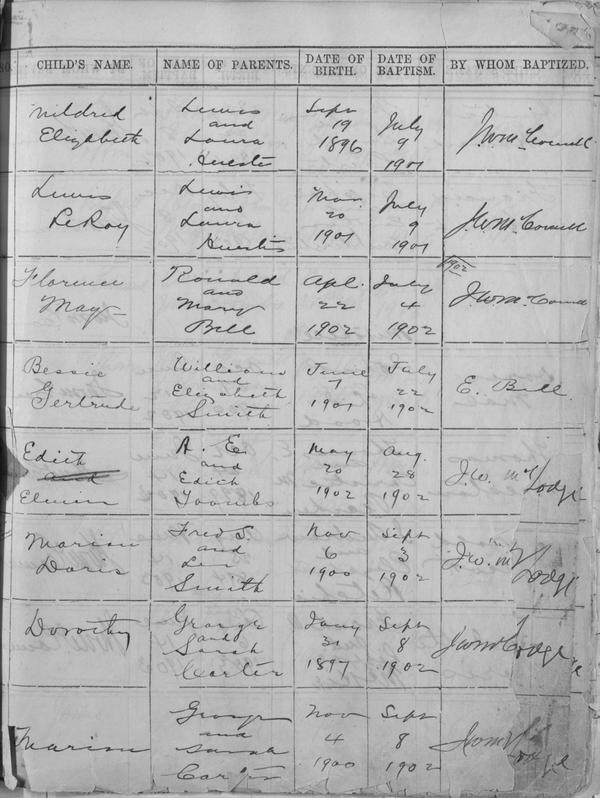 CHILD'S NAME. NAME OF PARENTS. DATE OF BIRTH. DATE OF BAPTISM. BY WHOM BAPTIZED.
Mildred Elizabeth
Lewis and Laura
Sept 19 1896
July 9 1901
Lewis LeRoy
Lewis and Laura
Nov. 20
July 9 1901
Florence May
Ronald and Mary Bell
Apl. 22 1902
July 4 1902
1902
Bessie Gertrude
William and Elizabeth Smith
June 7 1901
July 22 1902
E. Bell.
Edith and
A. E. and Edith Toombs
May 20 1902
Aug. 28 1902
J.W. McLodge
Marion Doris
Fred S. and Smith
Nov 6 1900
Sept 3 1902
J.W. McLodge
Dorothy
George and Sarah Carter
Jany 31 1897
Sept 8 1902
Marion
George and Sarah Carter
Nov 4 1900
Sept 8 1902